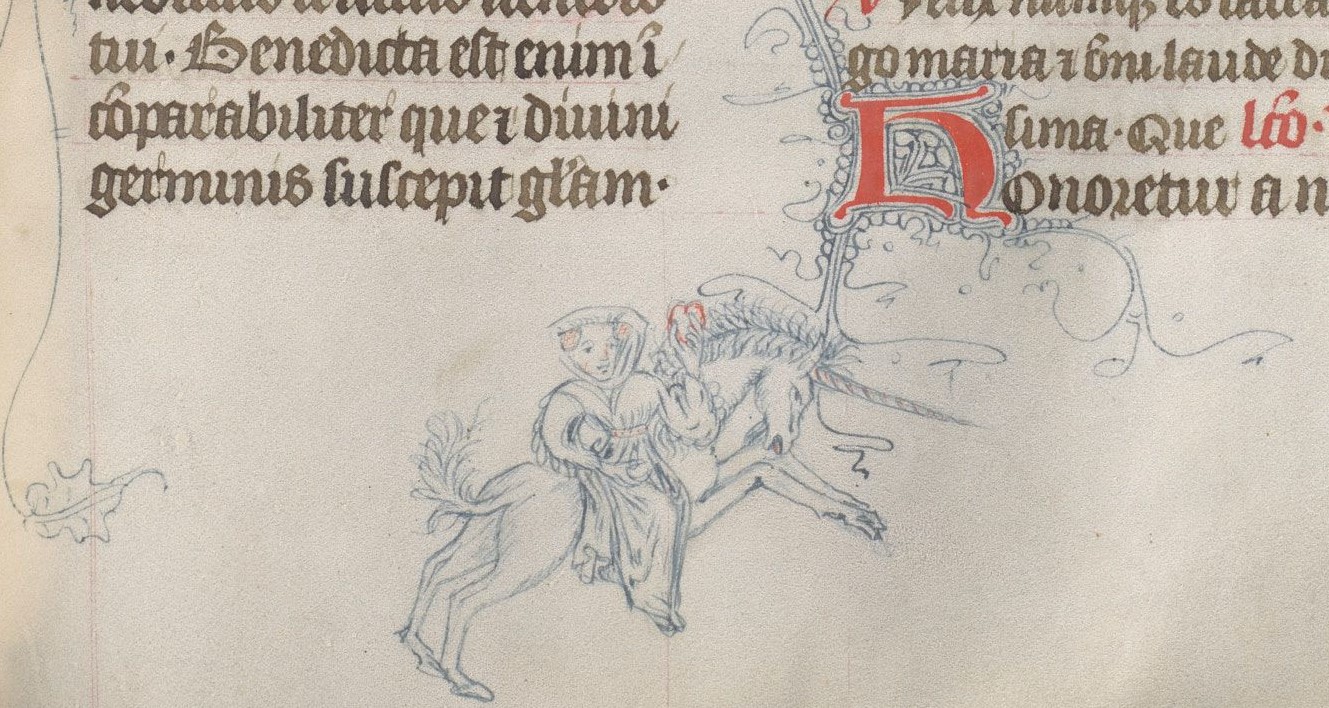 tui. Benedicta est enim ī
cōparabiliter que ⁊ diuini
germinis suscepit gl̄am.
go maria ⁊ d̄ni laude di
sima. Que lc̄o.
Honoretur a n